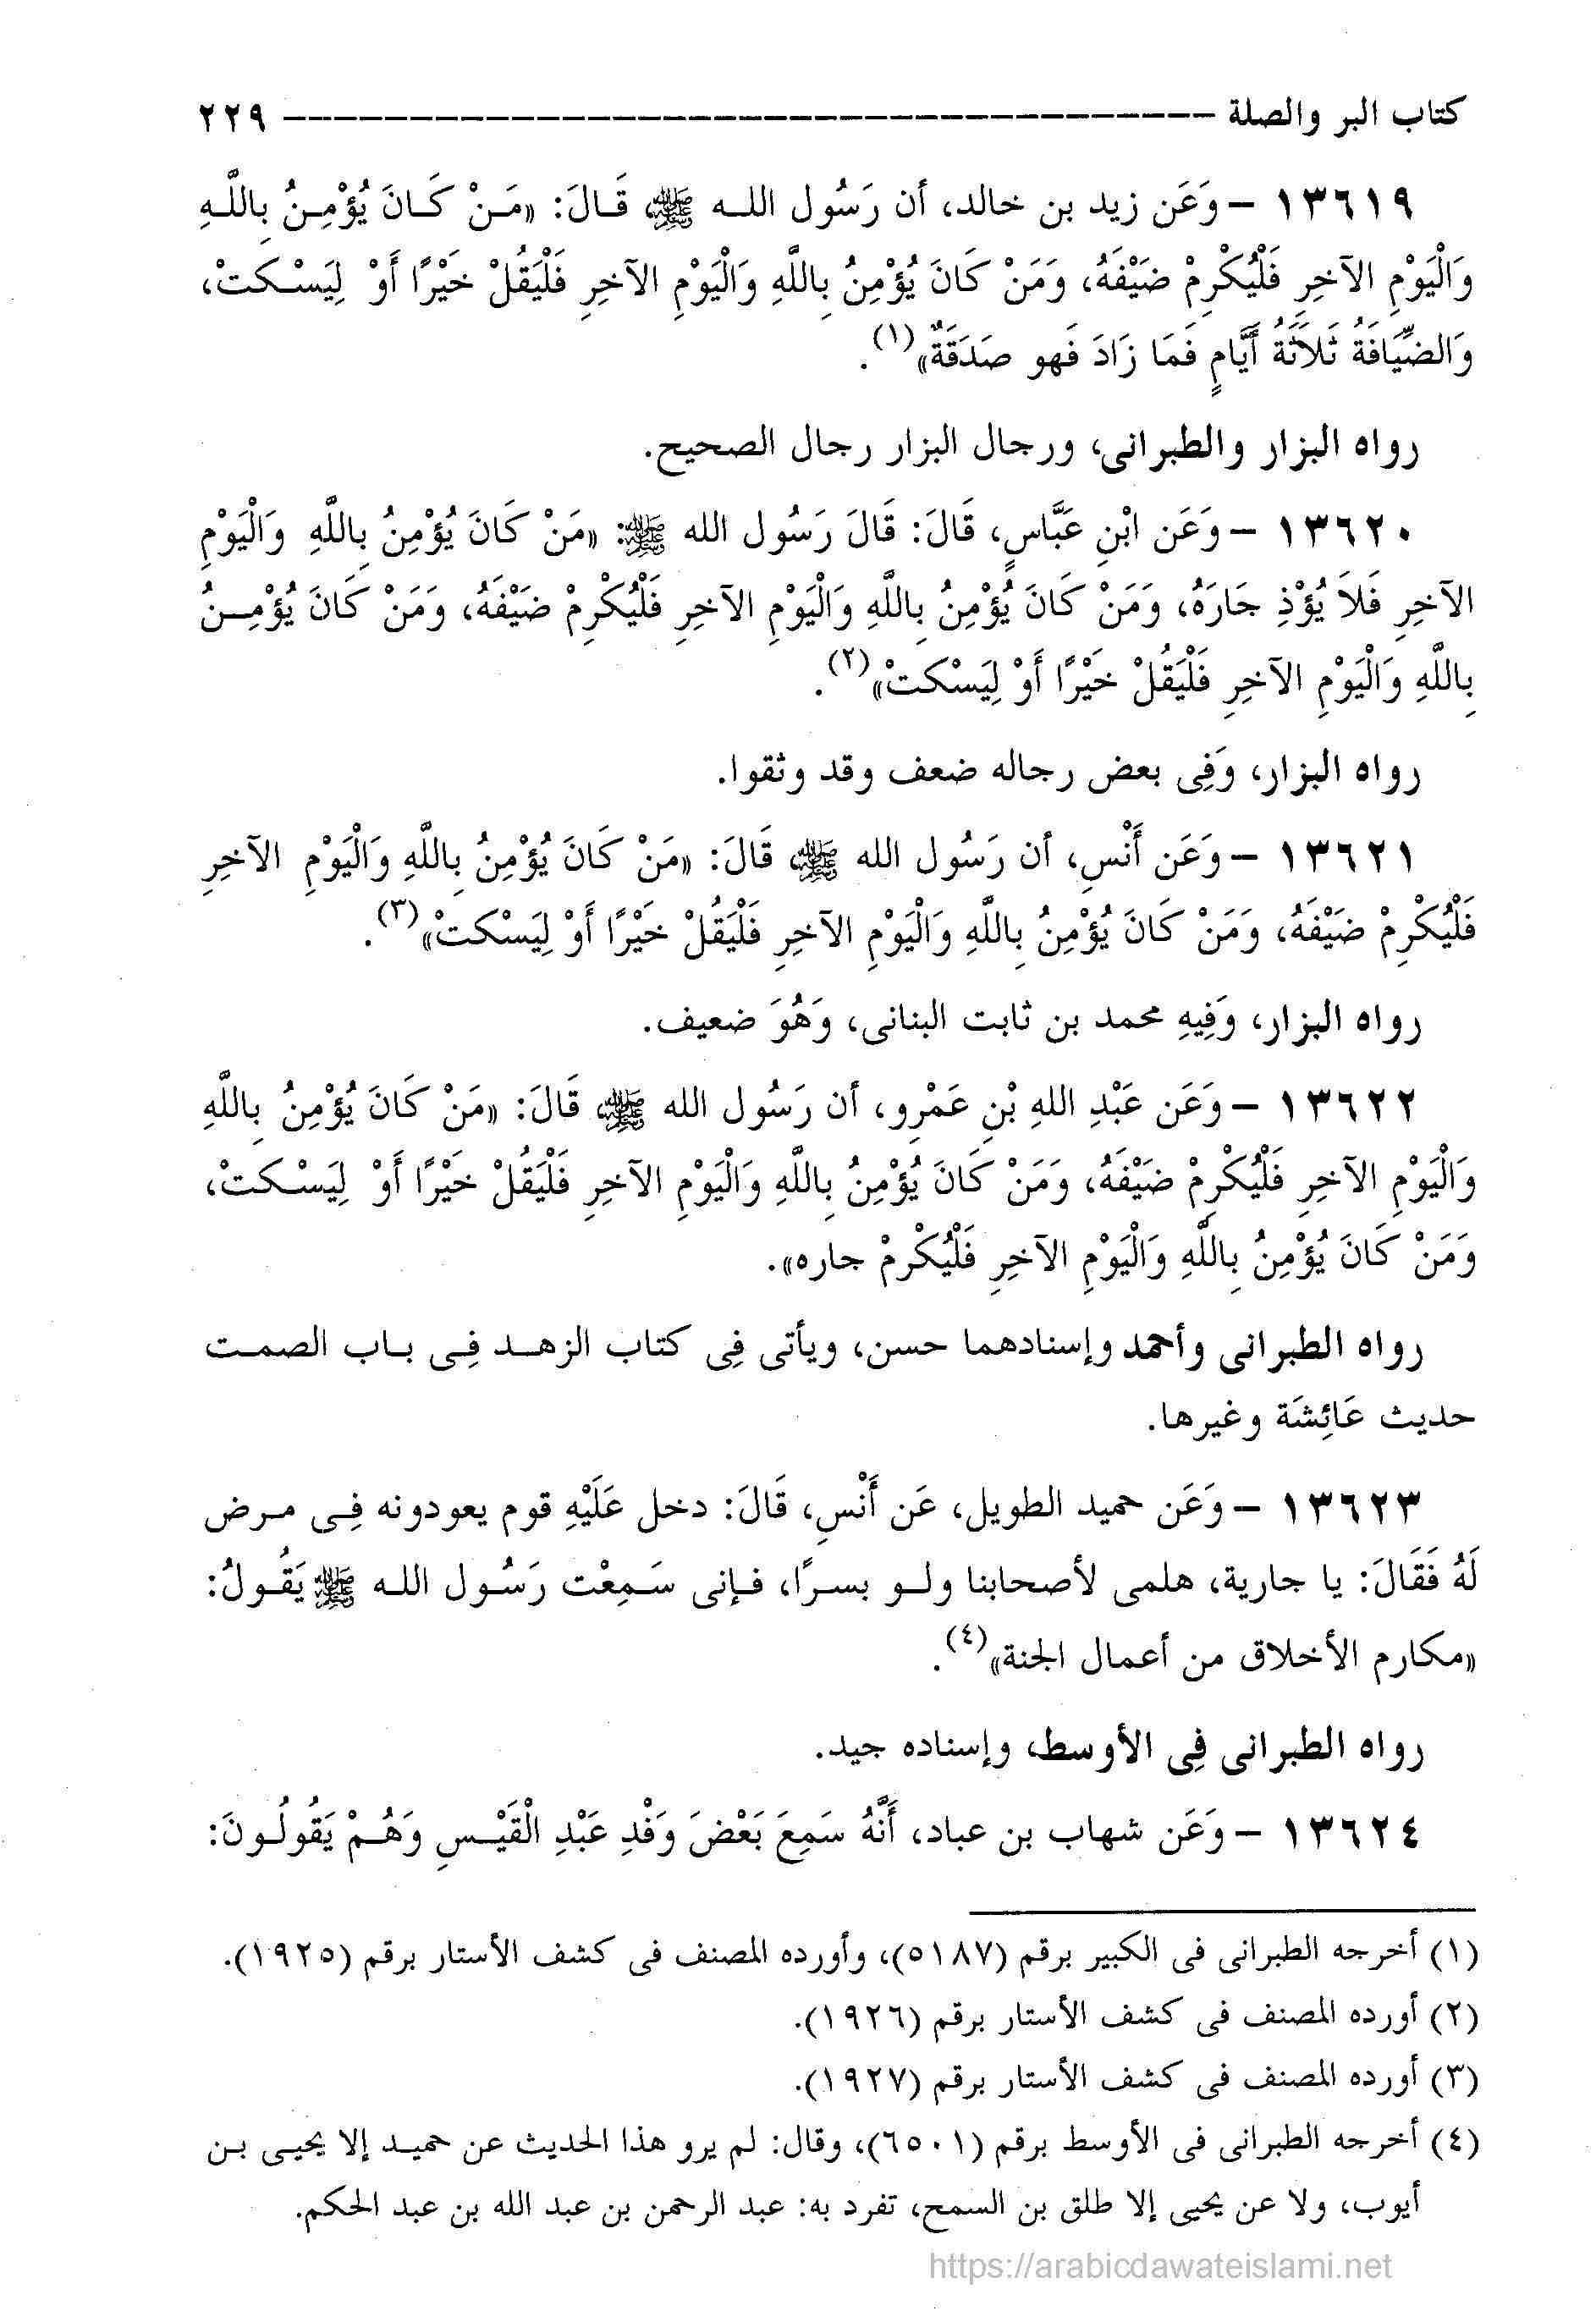 كتاب البر والصلة ـــــــــــــــــــــــــــــــــــــــــــــــــــــ ٢٢٩
١٣٦١٩ – وَعَن زيد بن خالد، أن رَسُول اللـه ﷺ، قَـالَ: «مَـنْ كَـانَ يُؤْمِـنُ بِاللَّـهِ
وَالْيَوْمِ الآخِرِ فَلْيُكْرِمْ ضَيْفَهُ، وَمَنْ كَانَ يُؤْمِنُ بِاللَّهِ وَالْيَوْمِ الآخِرِ فَلْيَقُلْ خَيْرًا أَوْ لِيَسْـكتْ،
وَالضِّيَافَةُ ثَلاَثَةُ أَيَّامٍ فَمَا زَادَ فَهو صَدَقَةٌ»(١).
رواه البزار والطبرانى، ورجال البزار رجال الصحيح.
١٣٦٢٠ – وَعَن ابْنِ عَبَّاسٍ، قَالَ: قَالَ رَسُول الله ﷺ: «مَنْ كَانَ يُؤْمِنُ بِاللَّهِ وَالْيَوْمِ
الآخِرِ فَلاَ يُؤْذِ جَارَهُ، وَمَنْ كَانَ يُؤْمِنُ بِاللَّهِ وَالْيَوْمِ الآخِرِ فَلْيُكْرِمْ ضَيْفَهُ، وَمَنْ كَانَ يُؤْمِـنُ
بِاللَّهِ وَالْيَوْمِ الآخِرِ فَلْيَقُلْ خَيْرًا أَوْ لِيَسْكتْ»(٢).
رواه البزار، وَفِى بعض رجاله ضعف وقد وثقوا.
١٣٦٢١ – وَعَن أَنْسِ، أن رَسُول الله ﷺ، قَالَ: «مَنْ كَانَ يُؤْمِنُ بِاللَّهِ وَالْيَوْمِ الآخِرِ
فَلْيُكْرِمْ ضَيْفَهُ، وَمَنْ كَانَ يُؤْمِنُ بِاللَّهِ وَالْيَوْمِ الآخِرِ فَلْيَقُلْ خَيْرًا أَوْ لِيَسْكتْ»(٣).
رواه البزار، وَفِيهِ محمد بن ثابت البنانى، وَهُوَ ضعيف.
١٣٦٢٢ – وَعَن عَبْدِ اللهِ بْنِ عَمْرِو، أن رَسُول الله ﷺ، قَالَ: «مَنْ كَانَ يُؤْمِنُ بِاللَّهِ
وَالْيَوْمِ الآخِرِ فَلْيُكْرِمْ ضَيْفَهُ، وَمَنْ كَانَ يُؤْمِنُ بِاللَّهِ وَالْيَوْمِ الآخِرِ فَلْيَقُلْ خَيْرًا أَوْ لِيَسْـكتْ،
وَمَنْ كَانَ يُؤْمِنُ بِاللَّهِ وَالْيَوْمِ الآخِرِ فَلْيُكْرِمْ جاره».
رواه الطبرانى وأحمد وإسنادهما حسن، ويأتى فِى كتاب الزهـد فِـى بـاب الصمـت
حديث عَائِشَة وغيرها.
١٣٦٢٣ – وَعَن حميد الطويل، عَن أَنْسِ، قَالَ: دخل عَلَيْهِ قوم يعودونه فِـى مـرض
لَهُ فَقَالَ: يا جارية، هلمى لأصحابنا ولـو بسـرًا، فـإنى سَـمِعْت رَسُـول اللـه ﷺ يَقُـولُ:
«مكارم الأخلاق من أعمال الجنة»(٤).
رواه الطبرانى فِى الأوسط، وإسناده جيد.
١٣٦٢٤ – وَعَن شهاب بن عباد، أَنَّهُ سَمِعَ بَعْضَ وَفْدِ عَبْدِ الْقَيْـسِ وَهُـمْ يَقُولُـونَ:
(١) أخرجه الطبرانى فى الكبير برقم (٥١٨٧)، وأورده المصنف فى كشف الأستار برقم (١٩٢٥).
(٢) أورده المصنف فى كشف الأستار برقم (١٩٢٦).
(٣) أورده المصنف فى كشف الأستار برقم (١٩٢٧).
(٤) أخرجه الطبرانى فى الأوسط برقم (٦٥٠١)، وقال: لم يرو هذا الحديث عن حميـد إلا يحيـى بـن
أيوب، ولا عن يحيى إلا طلق بن السمح، تفرد به: عبد الرحمن بن عبد الله بن عبد الحكم.
https://arabicdawateislami.net